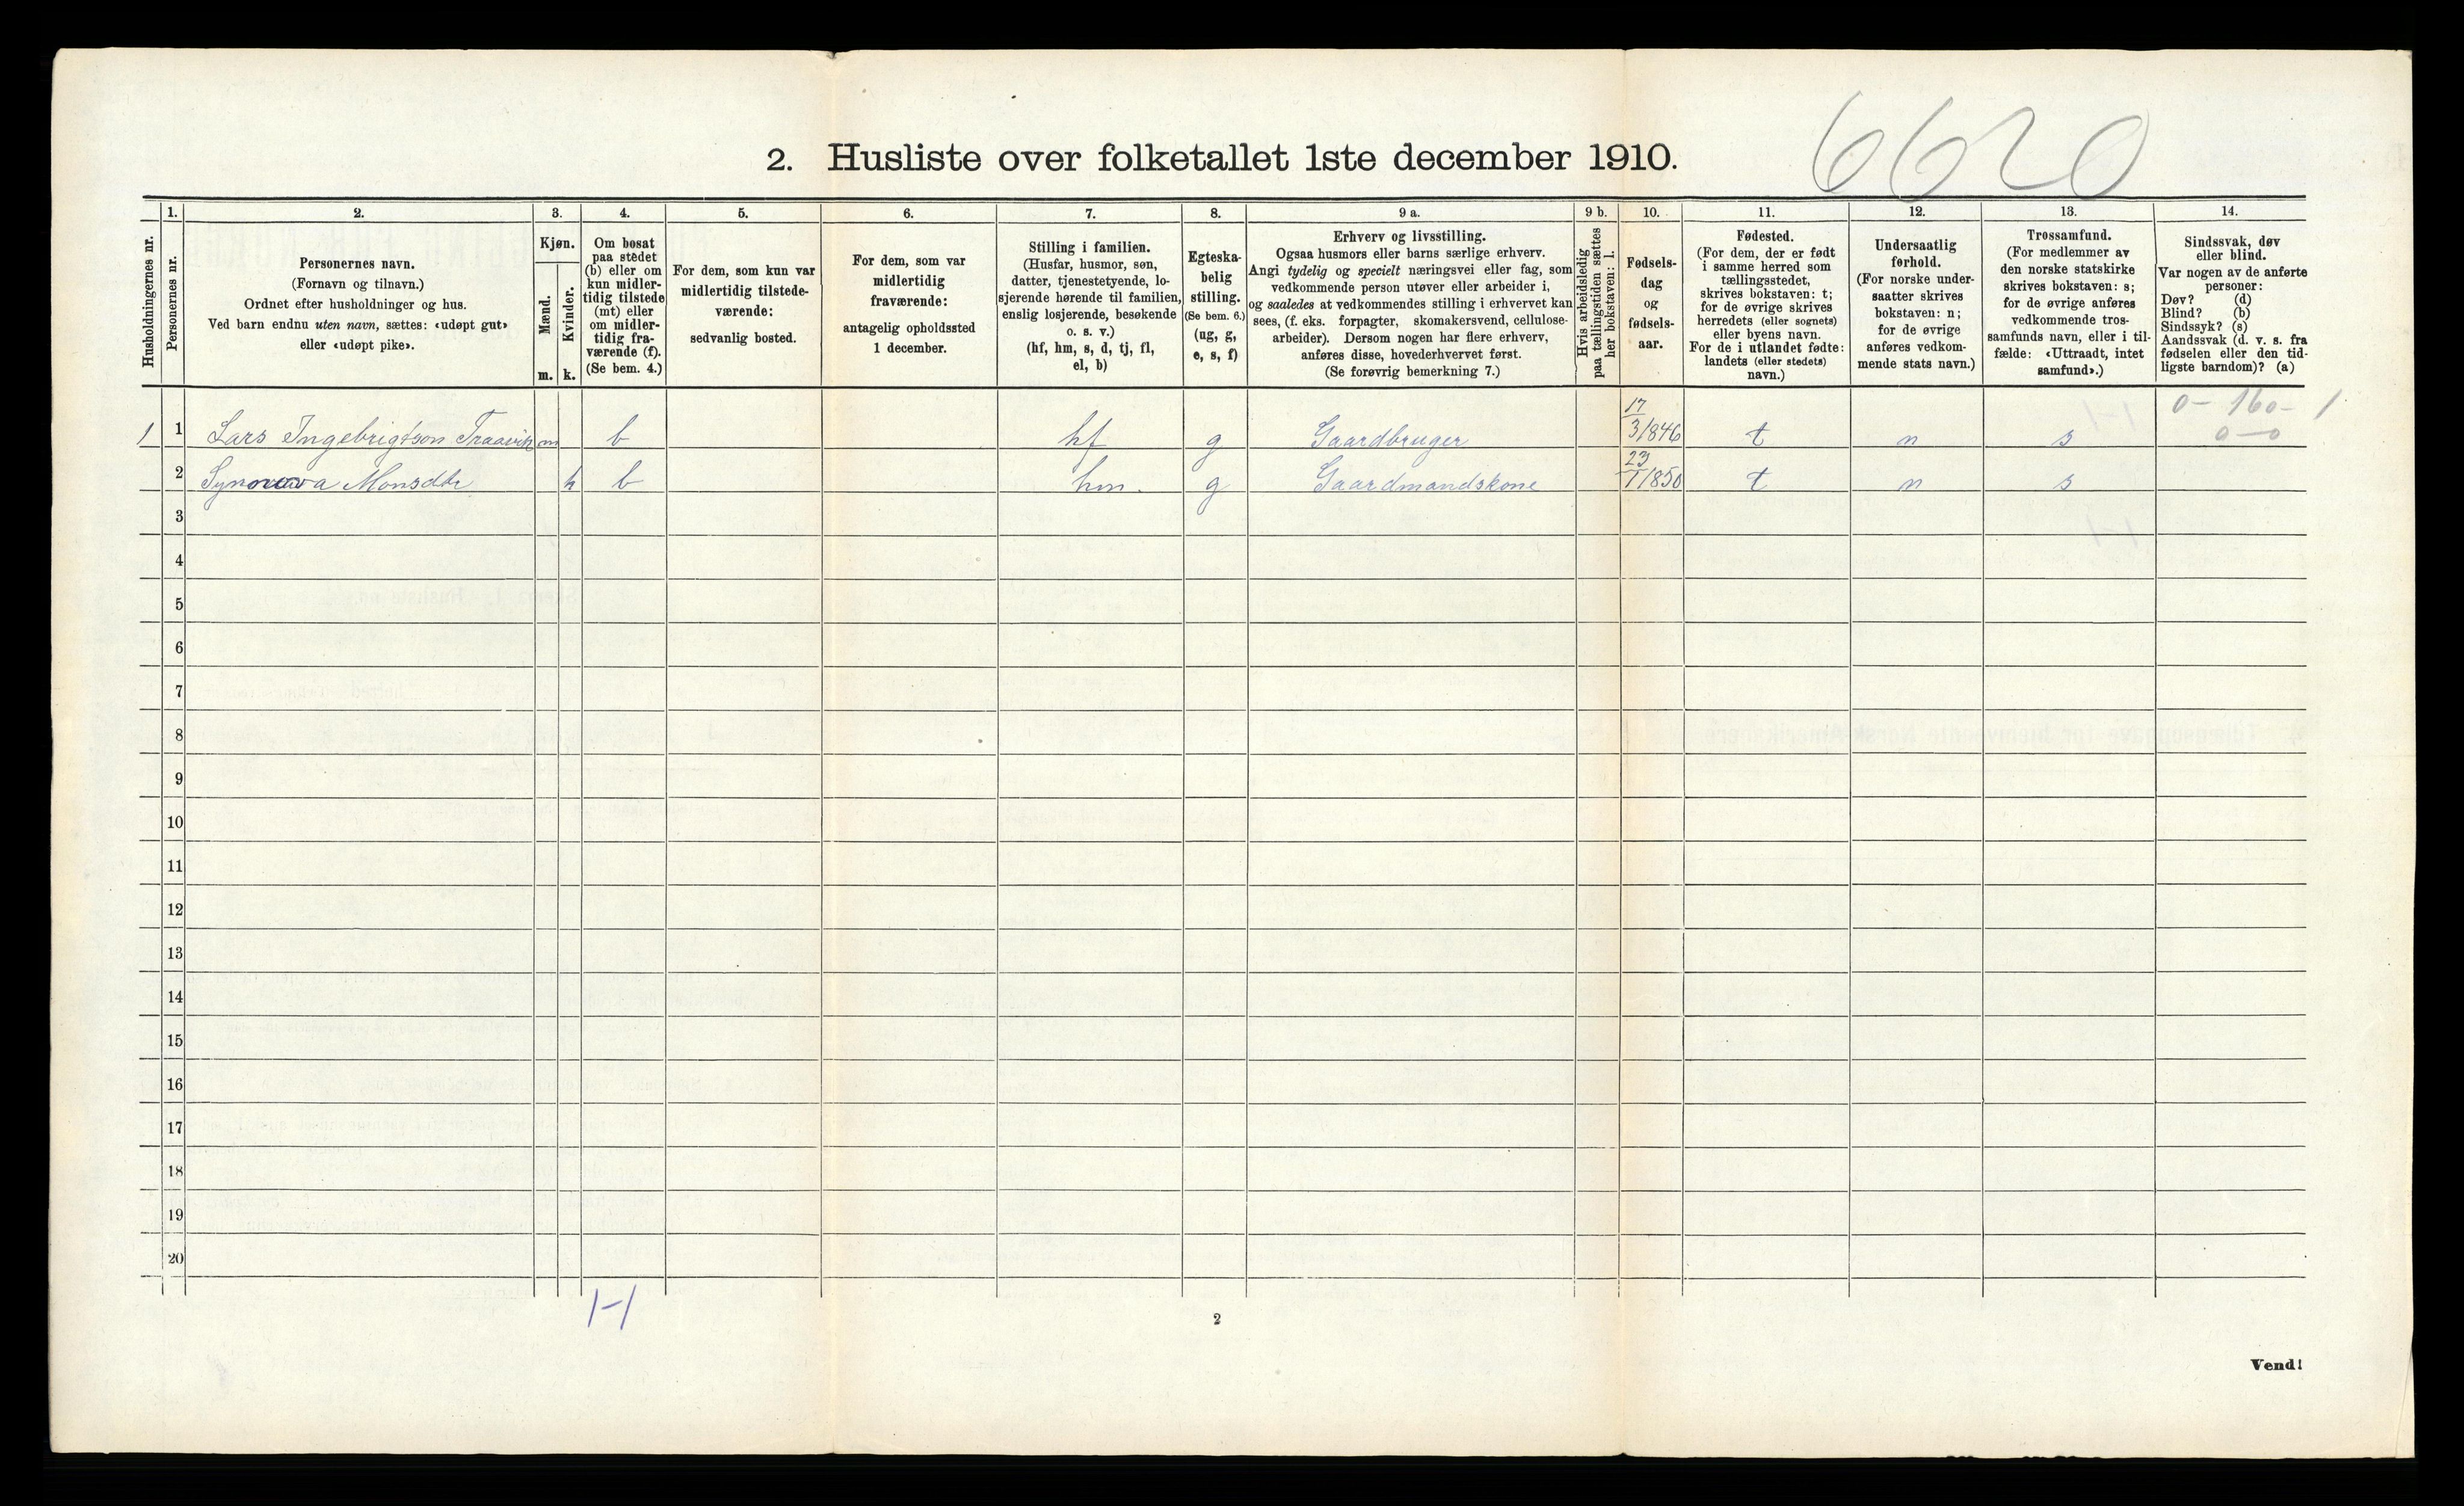 6620
2. Husliste over folketallet 1ste december 1910.
Husholdningernes nr.
1.
Personernes nr.
2.
Personernes navn.
(Fornavn og tilnavn.)
Ordnet efter husholdninger og hus.
Ved barn endnu uten navn, sættes: «udøpt gut»
eller «udøpt pike».
3.
Kjøn.
Mænd.
Kvinder.
m. k.
4.
Om bosat
paa stedet
(b) eller om
kun midler-
tidig tilstede
(mt) eller
om midler-
tidig fra-
værende (f).
(Se bem. 4.)
5.
For dem, som kun var
midlertidig tilstede-
værende:
sedvanlig bosted.
6.
For dem, som var
midlertidig
fraværende:
antagelig opholdssted
1 december.
7.
Stilling i familien.
(Husfar, husmor, søn,
datter, tjenestetyende, lo-
sjerende hørende til familien,
enslig losjerende, besøkende
o. s. v.)
(hf, hm, s, d, tj, fl,
el, b)
8.
Egteska-
belig
stilling.
(Se bem. 6.)
(ug, g,
e, s, f)
9 a.
Erhverv og livsstilling.
Ogsaa husmors eller barns særlige erhverv.
Angi tydelig og specielt næringsvei eller fag, som
vedkommende person utøver eller arbeider i,
og saaledes at vedkommendes stilling i erhvervet kan
sees, (f. eks. forpagter, skomakersvend, cellulose-
arbeider). Dersom nogen har flere erhverv,
anføres disse, hovederhvervet først.
(Se forøvrig bemerkning 7.)
9 b.
Hvis arbeidsledig
paa tællingstiden sættes
her bokstaven: l.
10.
Fødsels-
dag
og
fødsels-
aar.
11.
Fødested.
(For dem, der er født
i samme herred som
tællingsstedet,
skrives bokstaven: t;
for de øvrige skrives
herredets (eller sognets)
eller byens navn.
For de i utlandet fødte:
landets (eller stedets)
navn.)
12.
Undersaatlig
forhold.
(For norske under-
saatter skrives
bokstaven: n;
for de øvrige
anføres vedkom-
mende stats navn.)
13.
Trossamfund.
(For medlemmer av
den norske statskirke
skrives bokstaven: s;
for de øvrige anføres
vedkommende tros-
samfunds navn, eller i til-
fælde: «Uttraadt, intet
samfund».)
14.
Sindssvak, døv
eller blind.
Var nogen av de anførte
personer:
Døv? (d)
Blind? (b)
Sindssyk? (s)
Aandssvak (d. v. s. fra
fødselen eller den tid-
ligste barndom)? (a)
0 - 160 - 1
0 - 0
1 1 Lars Ingebrigtson Traavik m b hf g Gaardbruger 17/3 1846 t n s
2 Synova Monsdtr k b hm. g Gaardmandskone 23/1 1850 t n s
3
4
5
6
7
8
9
10
11
12
13
14
15
16
17
18
19
20
1-1
2
Vend!